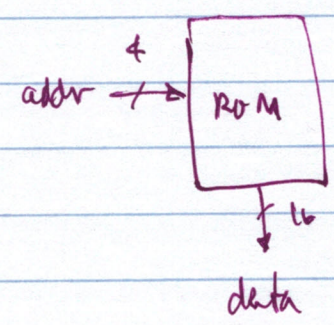 4
addr
ROM
16
data